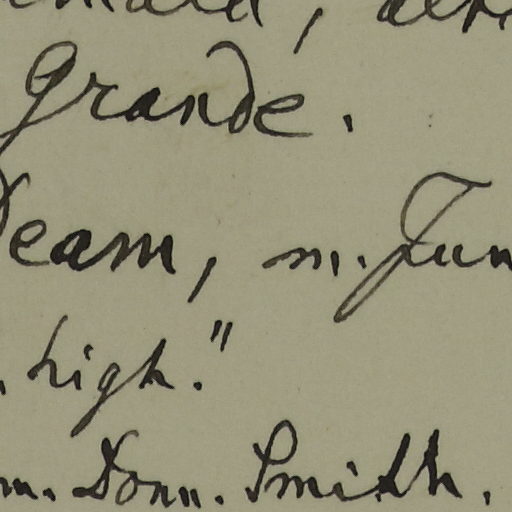 Grande.
Deam, m. Jun
high."
m. Donn. Smith.